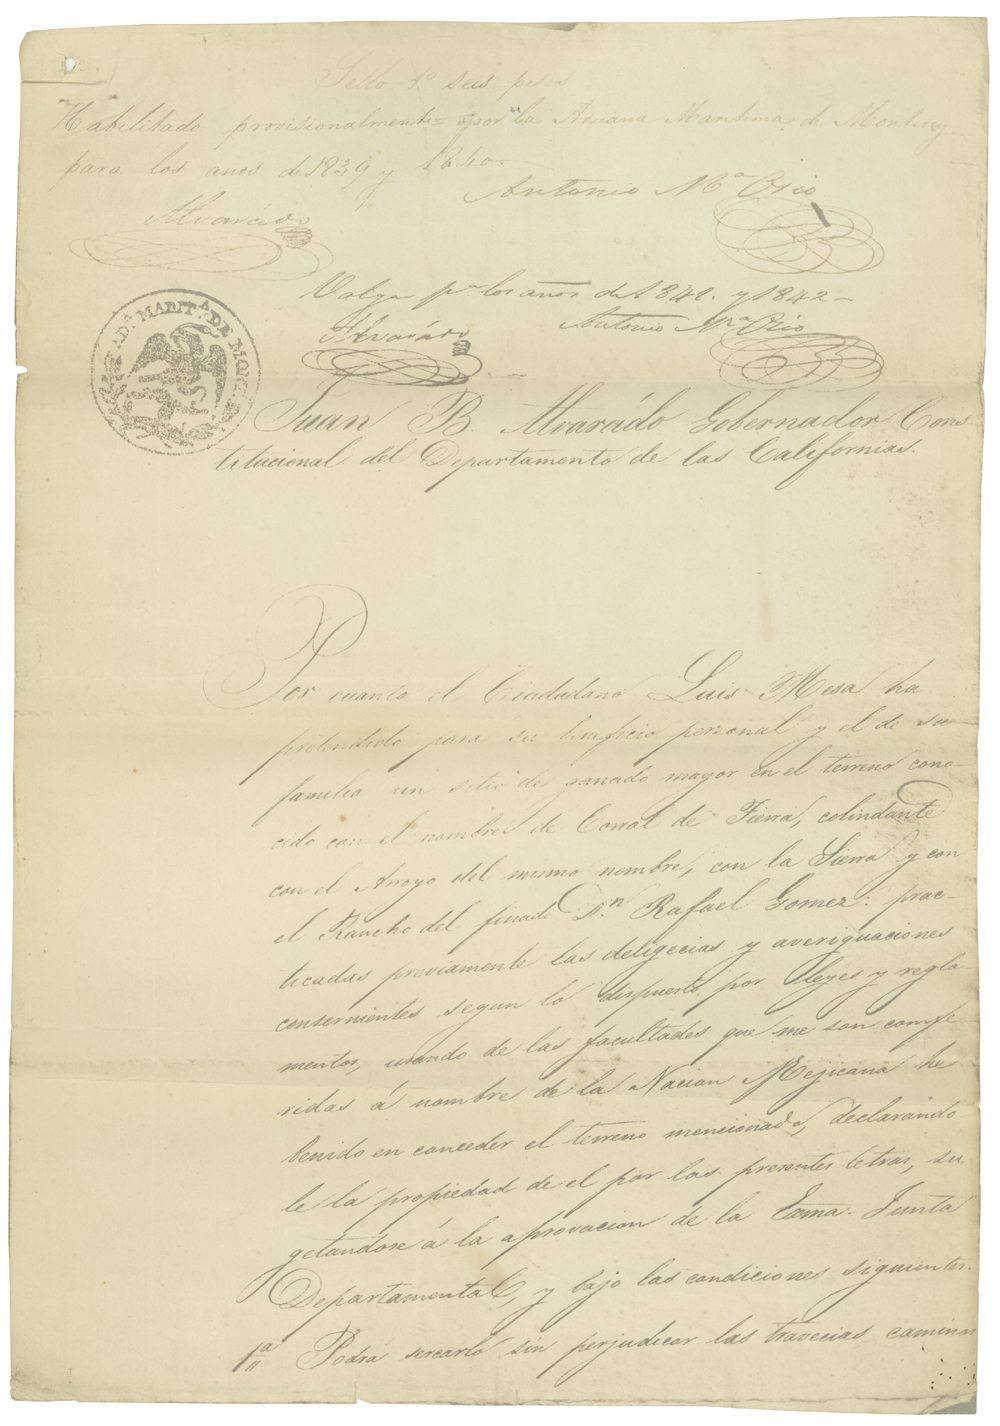 Sello 1º seis pesos
Habilitado provisionalmente por la Aduana Maritima de Monterey
para los años de 1839 y 1840.
Antonio Mª Osio
Alvarado
Valga pª los años de 1841. y 1842 –
Alvarádo
Antonio Mª Osio
ADª MARITª DE MON
Juan B. Alvarádo Gobernador Cons
titucional del Departamento de las Californias.
Por cuanto el Ciudadano Luis Mesa ha
pretendido para su beneficio personal y el de su
familia un sitio de ganado mayor en el terreno cono-
cido con el nombre de Corral de Tierra, colindante
con el Arroyo del mismo nombre, con la Sierra y con
el Rancho del finado Dn Rafael Gomez: prac-
ticadas previamente las deligecias y averiguaciones
consernientes segun lo dispuesto por leyes y regla-
mentos, usando de las facultades que me son confe-
ridas á nombre de la Nacion Mejicana he
benido en conceder el terreno mencionado, declarando
le la propiedad de el por las presentes letras, su
getandose á la aprovacion de la Exma. Junta
Departamental, y bajo las condiciones siguientes.
1ª Podrá sercarlo sin perjudicar las travecias caminos